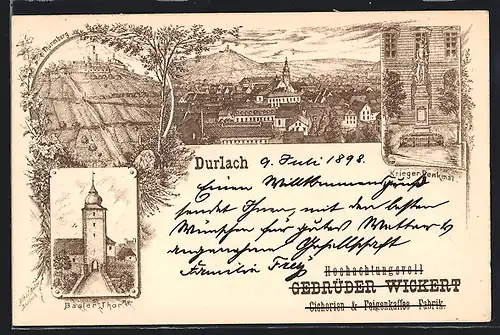 Thurmberg
Krieger-Denkmal
Durlach 9. Juli 1898.
Einen Willkommensgruß
sendet Ihnen, mit den besten
Wünschen für gutes Wetter &
angenehme Gesellschaft
Familie
Basler Thor.
Hochachtungsvoll
GEBRÜDER WICKERT
Cichorien & Feigenkaffee Fabrik.